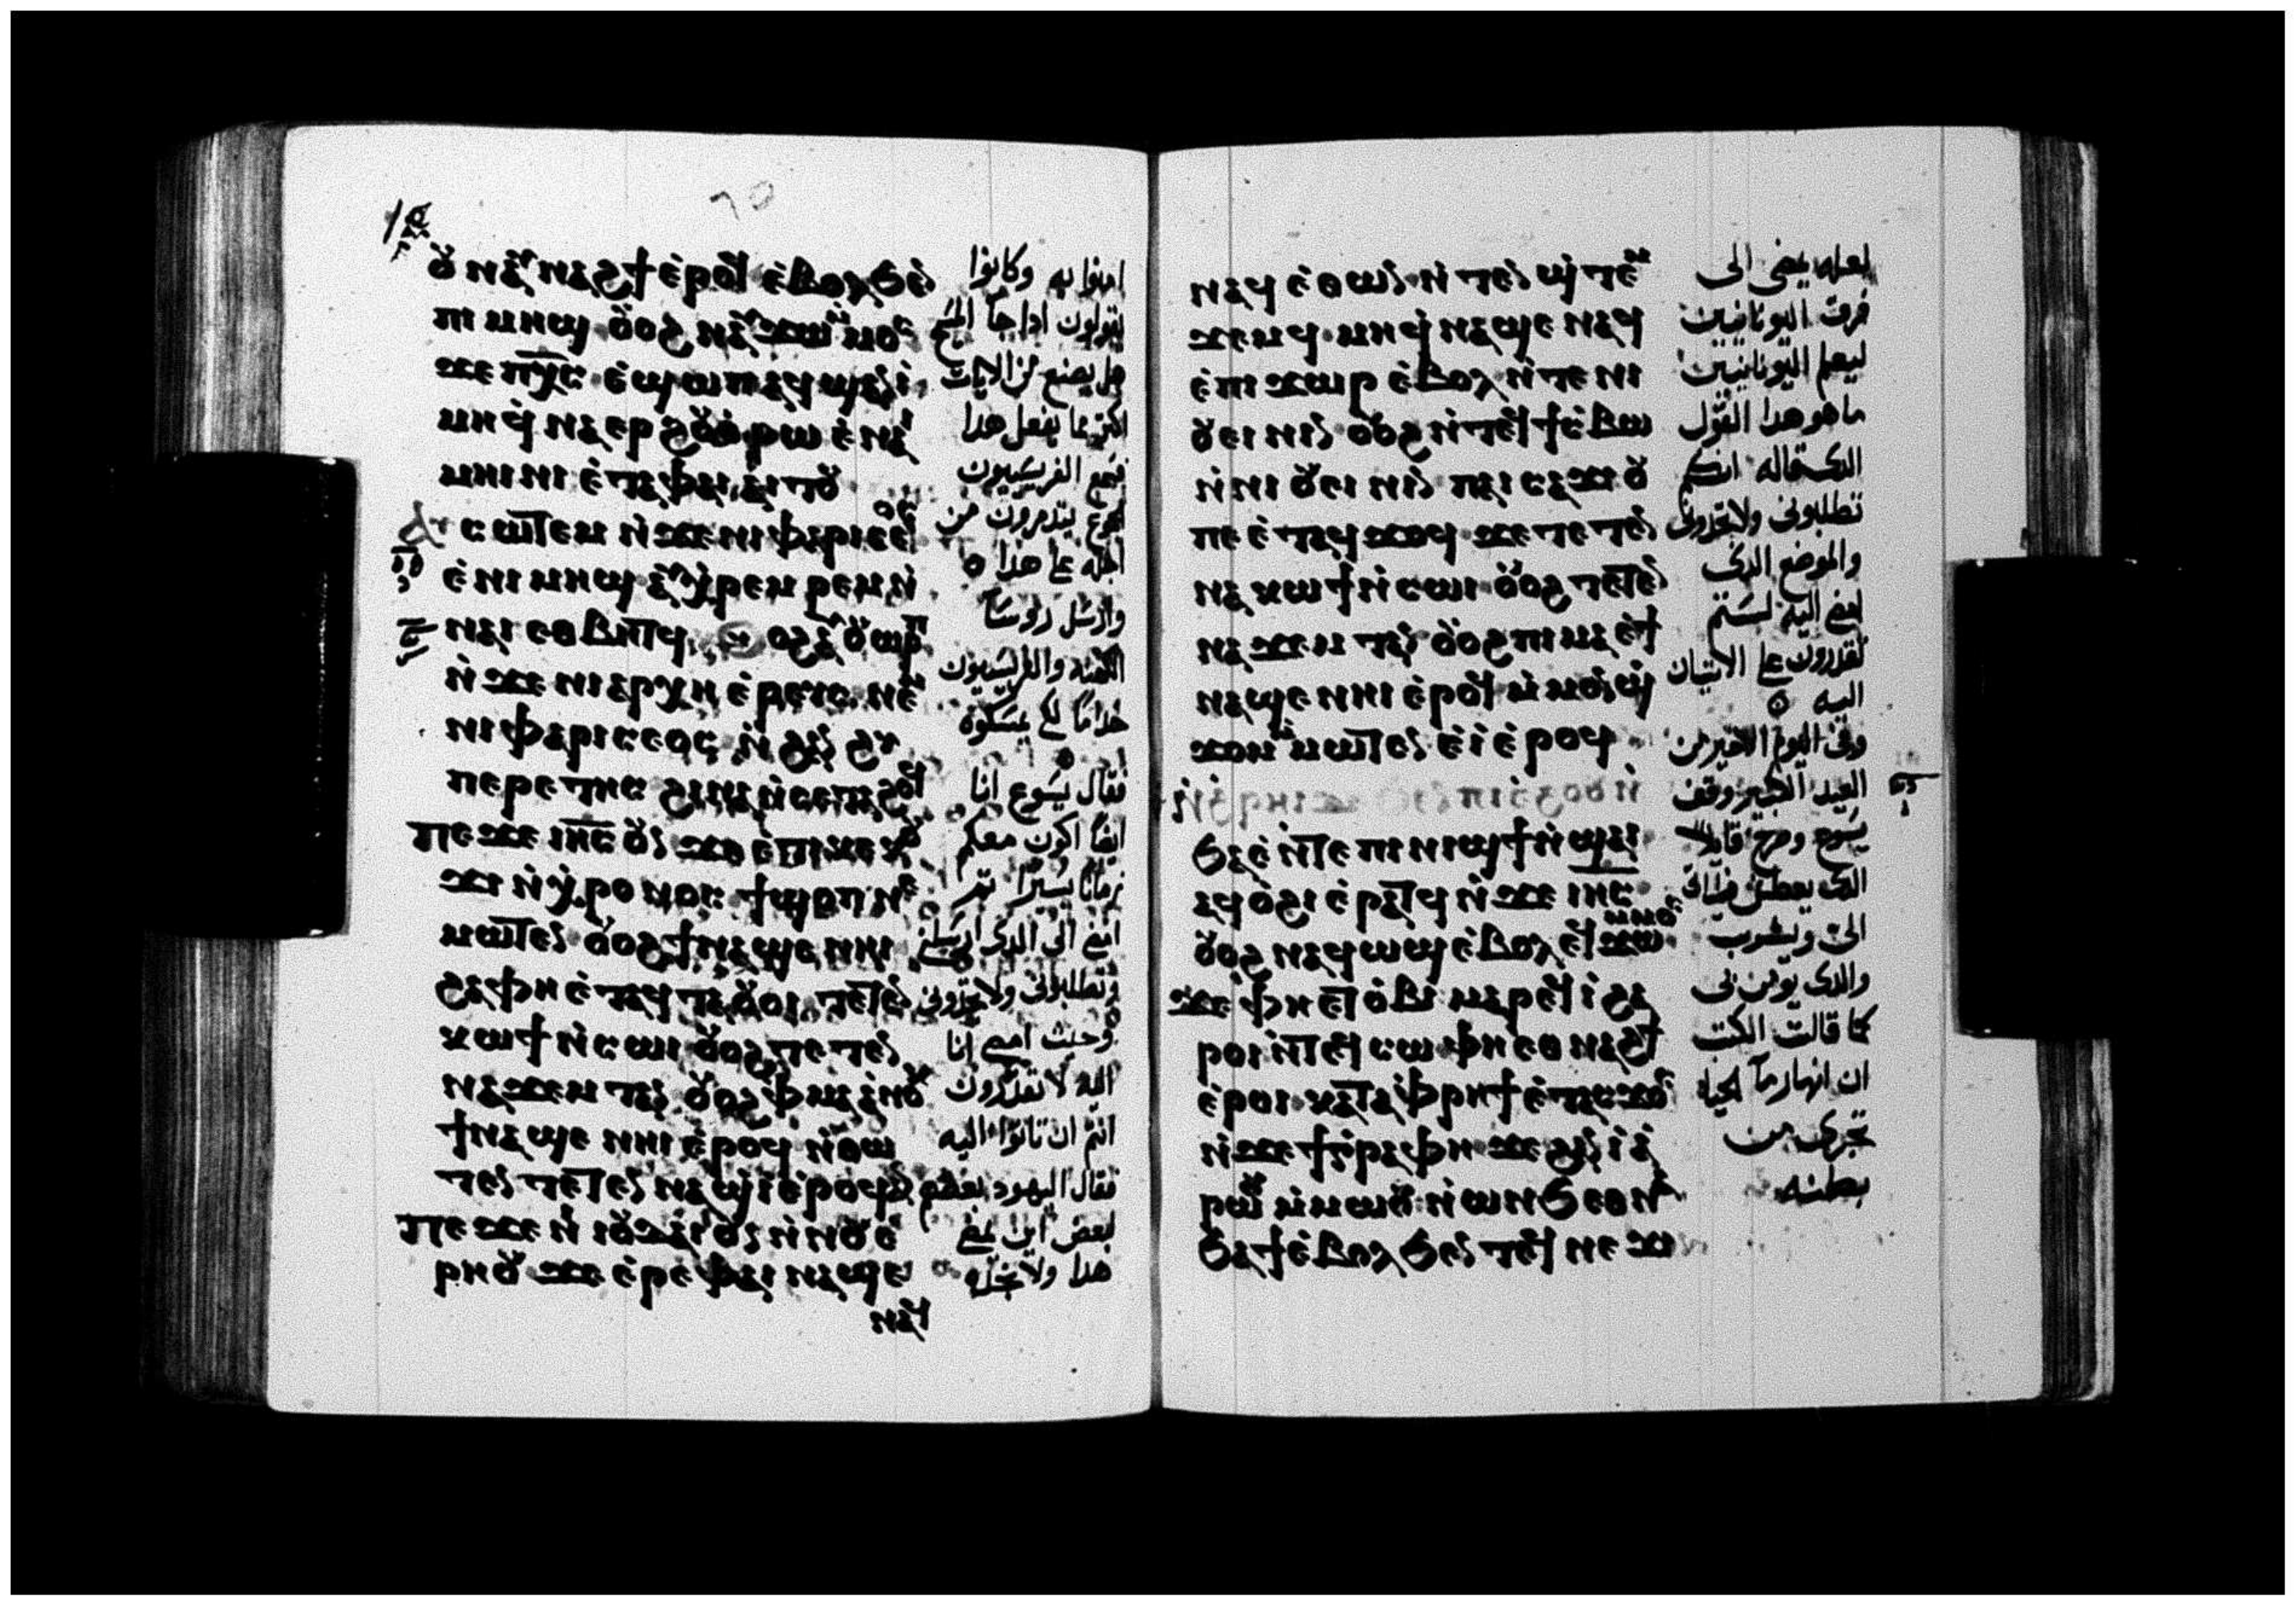 ⲡⲓ ⲙⲏϣ ⲟⲩⲟϩ ⲛⲁⲩϫⲱ ⲙⲙⲟⲥ
ϫⲉ ⲡⲭ̅ⲥ̅ ⲉϣⲱⲡ ⲁϥϣⲁⲛⲓ
ⲙⲏ ϥⲛⲁⲉⲣ ϩⲟⲩⲟ ⲉⲛⲁⲓ
ⲙⲏⲓⲛⲓ ⲉⲧⲁ ⲫⲁⲓ ⲁⲓⲧⲟⲩ
ⲥⲱⲧⲉⲙ ⲛϫⲉ ⲛⲓⲫⲁⲣⲓⲥⲉⲟⲥ
ⲉⲡⲓⲙⲏϣ ⲉⲩⲭⲣⲉⲙⲣⲉⲙ
ⲛⲁⲓ ⲉⲑⲃⲏⲧϥ ⲟⲩⲟϩ ⲁⲩⲟⲩⲱⲣⲡ
ⲛϫⲉ ⲛⲓⲁⲣⲭⲏⲉⲣⲉⲩⲥ ⲛⲉⲙ
ⲛⲓⲫⲁⲣⲓⲥⲉⲟⲥ ⲛϩⲁⲛϩⲩ
ⲡⲉⲣⲉⲧⲏⲥ ϩⲓⲛⲁ ⲛⲥⲉⲧⲁϩⲟϥ
ⲡⲉϫⲉ ⲓⲏ̅ⲥ̅ ⲟⲩⲛ ϫⲉ ⲉⲧⲓ ⲕⲉⲕⲟⲩ
ϫⲓ ⲛⲭⲣⲟⲛⲟⲥ ϯϣⲟⲡ ⲛⲉ
ⲙⲱⲧⲉⲛ ⲟⲩⲟϩ ϯⲛⲁϣⲉ ⲛⲏⲓ
ϩⲁ ⲫⲏ ⲉⲧⲁϥⲧⲁⲟⲩⲟⲓ ⲧⲉⲧⲉⲛ
ⲕⲱϯ ⲛⲥⲱⲓ ⲟⲩⲟϩ ⲧⲉⲧⲉⲛ
ⲛⲁϫⲉⲙⲧ ⲁⲛ ⲟⲩⲟϩ ⲫⲙⲁ ⲁⲛⲟⲕ
ϯⲛⲁϣⲉ ⲛⲏⲓ ⲉⲣⲟϥ ⲛⲑⲱ
ⲧⲉⲛ ⲧⲉⲧⲉⲛⲛⲁϣⲓ ⲉⲣⲟϥ ⲁⲛ
ⲡⲉϫⲉ ⲛⲓⲟⲩⲇⲁⲓ ⲟⲩⲛ ⲛⲛⲟⲩⲉ
ⲣⲏⲟⲩ ϫⲉ ⲉⲣⲉ ⲫⲁⲓ ⲛⲁϣⲉ
ⲛⲁϥ
امنوا به وكانوا
يقولون ادا جا المسيح
هل يصنع من الايات
اكتر مما يفعل هدا
فسمع الفريسيون
الجمع يتدمرون من
اجله على هدا
وارسل روسا
الكهنه والفريسيون
خداما لكي يمسكوه
فقال يسوع انا
ايضا اكون معكم
زمانا يسيرا تم
امضي الى الدي ارسلني
وتطلبوني ولا تجدوني
وحيث امضي انا
اليه لا تقدرون
انتم ان تاتوا اليه
فقال اليهود بعضهم
لبعض اين يمضي
هدا ولا نجده
ⲛⲁϥ ⲉⲑⲱⲛ ⲛⲧⲉⲛϣⲧⲉⲙ
ϫⲉⲙϥ ⲙⲏ ϥⲛⲁϣⲉ ⲛⲁϥ
ⲉⲡⲓϫⲱⲣ ⲉⲃⲟⲗ ⲛⲧⲉ ⲛⲓ
ⲟⲩⲉⲓⲛⲓⲛ ⲟⲩⲟϩ ⲛⲧⲉϥϯⲥⲃⲱ
ⲛⲛⲓⲟⲩⲉⲓⲛⲓⲛ ⲡⲁⲓⲥⲁϫⲓ ⲟⲩ
ⲡⲉ ⲉⲧⲁϥϫⲟϥ ϫⲉ ⲧⲉⲧⲉⲛ
ⲛⲁⲕⲱϯ ⲛⲥⲱⲓ ⲟⲩⲟϩ ⲧⲉⲧⲉⲛ
ⲛⲁϫⲉⲙⲧ ⲁⲛ ⲟⲩⲟϩ ⲡⲓⲙⲁ ⲉϯ
ⲛⲁϣⲉ ⲛⲏⲓ ⲉⲣⲟϥ ⲙⲙⲟⲛϣ
ϫⲟⲙ ⲙⲙⲱⲧⲉⲛ ⲉⲓ ⲉⲣⲟϥ
ϧⲁⲉ ⲛⲧⲉ ⲡⲓⲛⲓϣϯ ⲛϣⲁⲓ
ⲁϥⲟϩⲓ ⲉⲣⲁⲧϥ ⲛϫⲉ ⲓⲏ̅ⲥ̅
ⲟⲩⲟϩ ⲛⲁϥⲱϣ ⲉⲃⲟⲗ ⲉϥϫⲱ ⲙⲙⲟⲥ
ϫⲉ ⲫⲏ ⲉⲧⲟⲃⲓ ⲙⲁⲣⲉϥⲓ ϩⲁ
ⲣⲟⲓ ⲛⲧⲉϥⲥⲱ ⲫⲏ ⲉⲑⲛⲁϩϯ
ⲉⲣⲟⲓ ⲕⲁⲧⲁ ⲫⲣⲏϯ ⲉⲧⲁⲥϫⲟⲥ
ⲛϫⲉ ϯⲅⲣⲁⲫⲏ ϫⲉ ϩⲁⲛⲓⲁ
ⲣⲱⲟⲩ ⲙⲙⲱⲟⲩ ⲛⲱⲛϧ ⲉⲑⲛⲁ
ϧⲁϯ ⲉⲃⲟⲗ ϧⲉⲛ ⲧⲉϥⲛⲉϫⲓ
لعله يمضي الى
فرق اليونانيين
ليعلم اليونانيين
ما هو هدا القول
الدي قاله انكم
تطلبوني ولا تجدوني
والموضع الدي
امضي اليه لستم
تقدرون على الاتيان
اليه
وفي اليوم الاخير من
العيد الكبير وقف
يسوع وصرخ قايلا
الدي يعطش فياتي
الي ويشرب
والدي يومن بي
كما قالت الكتب
ان انهار ما الحياه
تجري من
بطنه